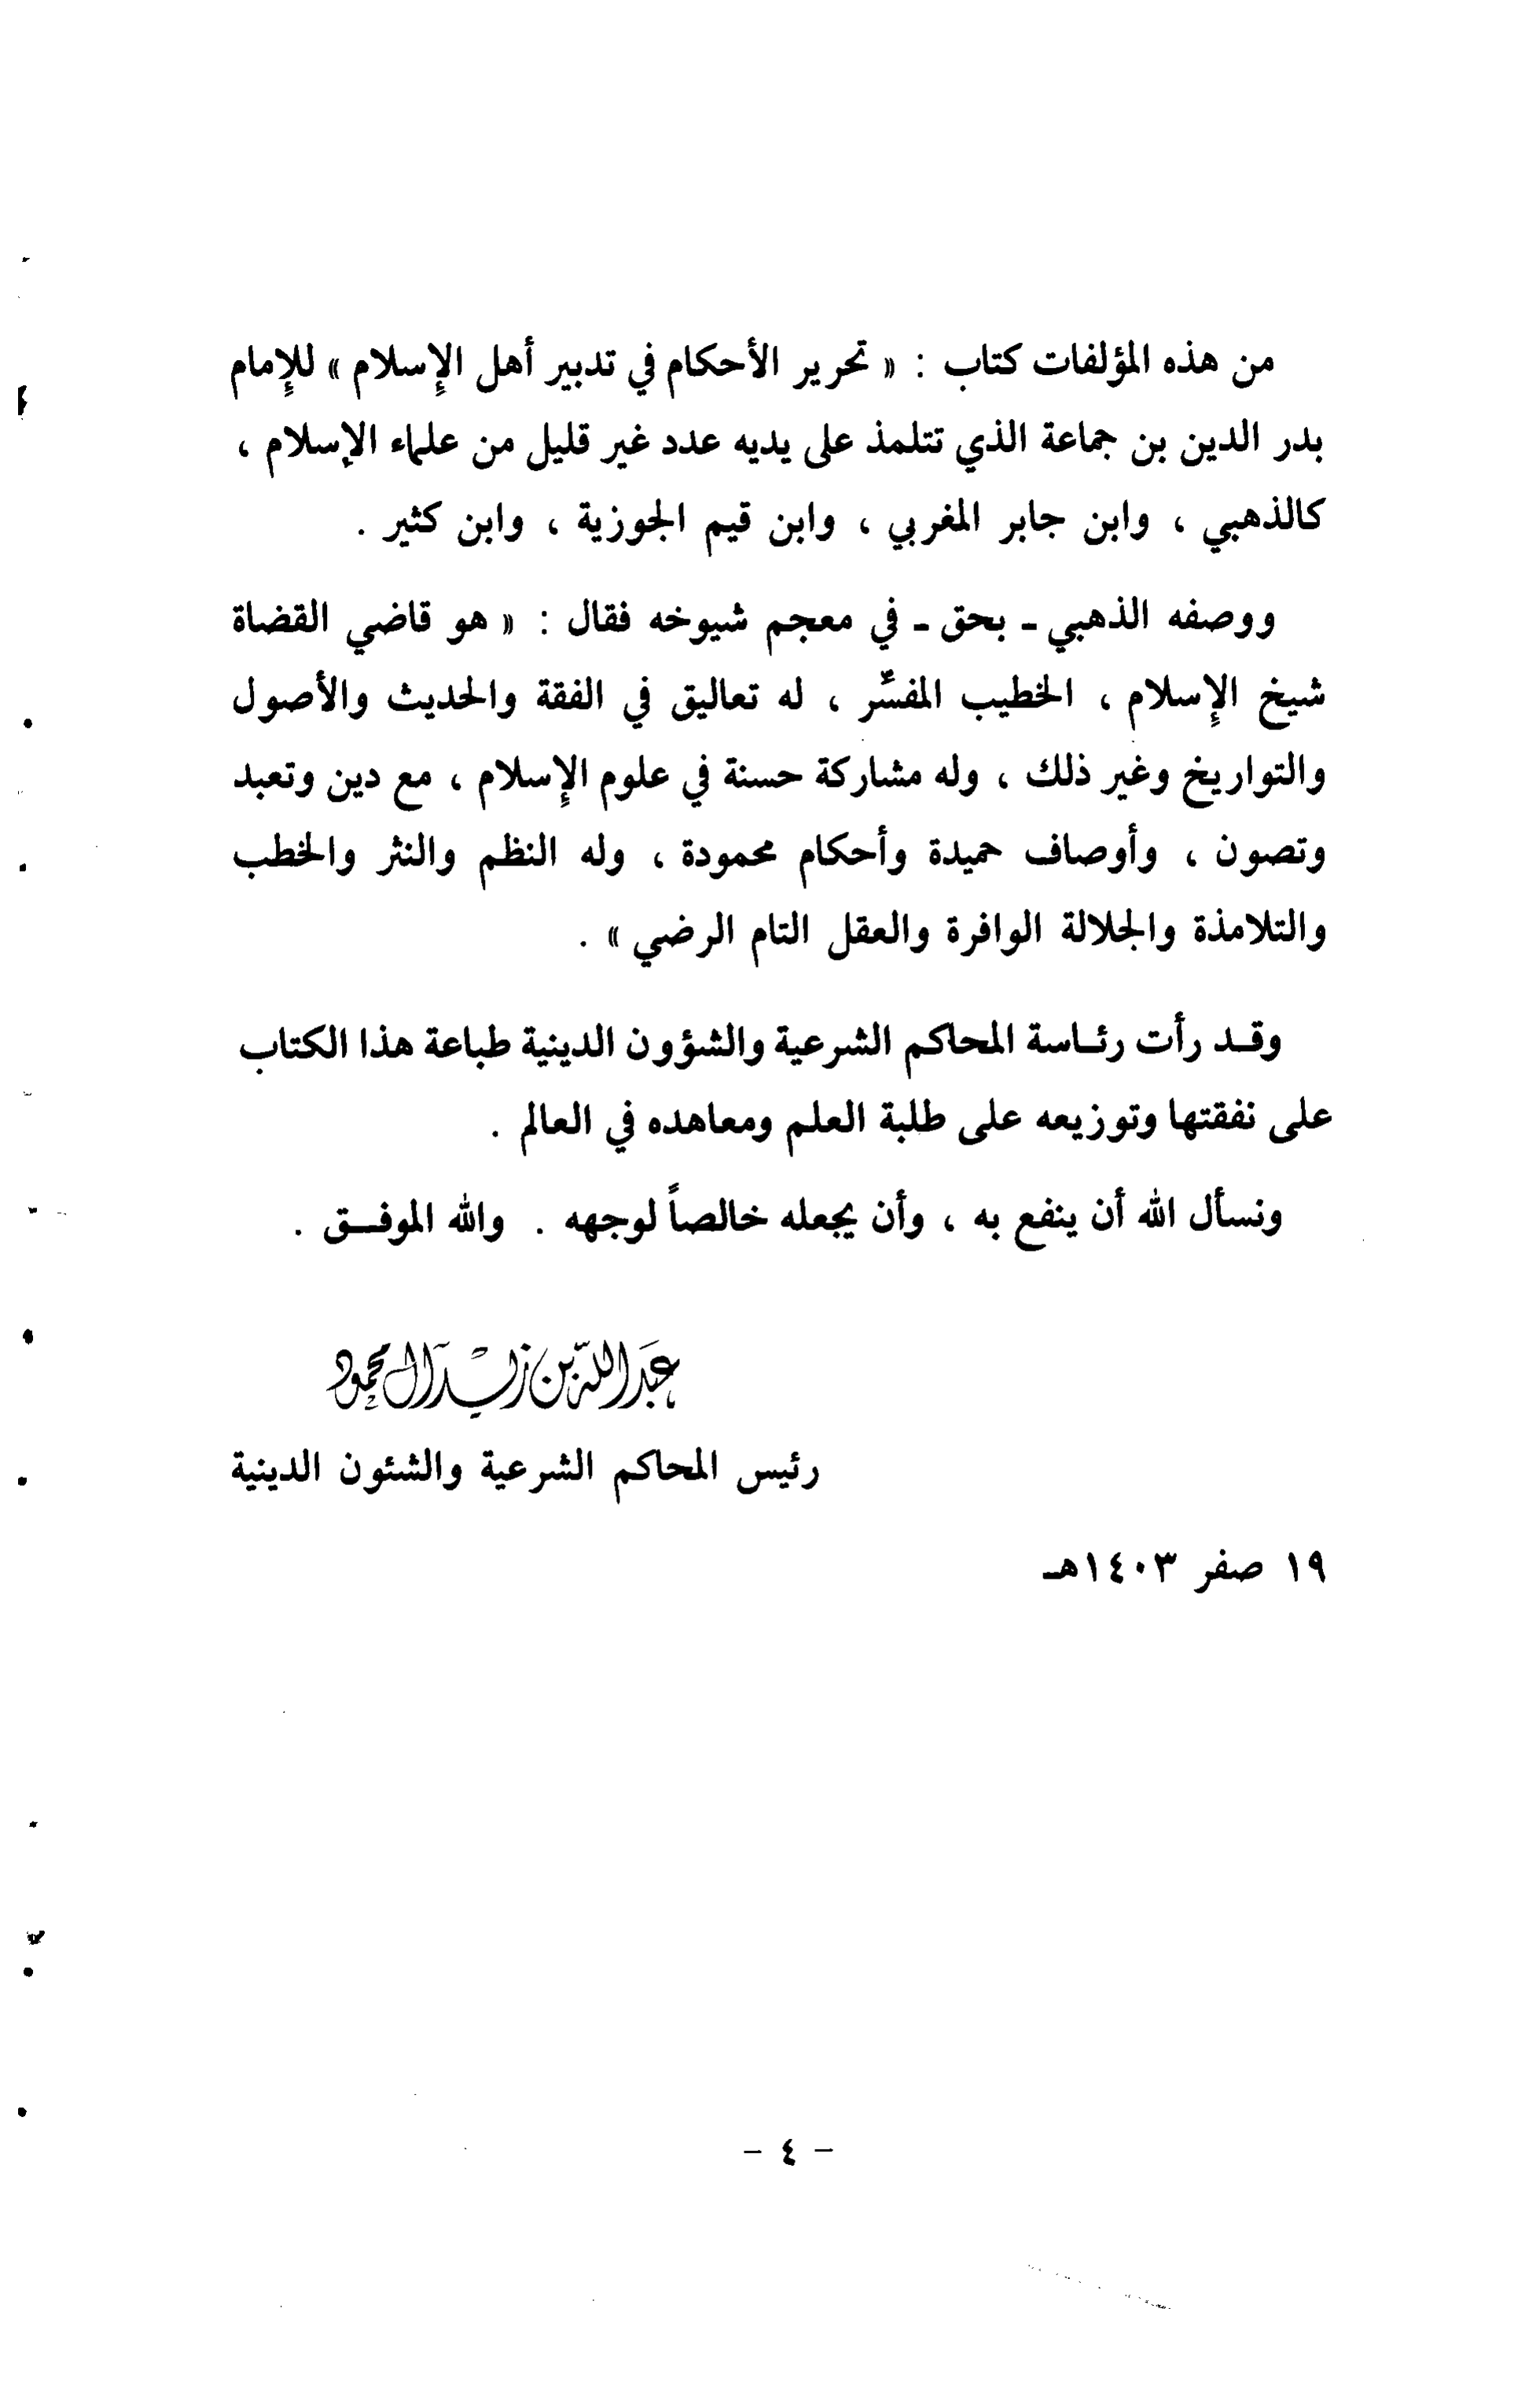 من هذه المؤلفات كتاب : « تحرير الأحكام في تدبير أهل الإسلام » للإمام
بدر الدين بن جماعة الذي تتلمذ على يديه عدد غير قليل من علماء الإسلام ،
كالذهبي ، وابن جابر المغربي ، وابن قيم الجوزية ، وابن كثير .
ووصفه الذهبي ـ بحق ـ في معجم شيوخه فقال : « هو قاضي القضاة
شيخ الإسلام ، الخطيب المفسِّر ، له تعاليق في الفقة والحديث والأصول
والتواريخ وغير ذلك ، وله مشاركة حسنة في علوم الإسلام ، مع دين وتعبد
وتصون ، وأوصاف حميدة وأحكام محمودة ، وله النظم والنثر والخطب
والتلامذة والجلالة الوافرة والعقل التام الرضي » .
وقـد رأت رئـاسة المحاكم الشرعية والشؤون الدينية طباعة هذا الكتاب
على نفقتها وتوزيعه على طلبة العلم ومعاهده في العالم .
ونسأل الله أن ينفع به ، وأن يجعله خالصاً لوجهه . والله الموفـق .
عبد الله بن زيد آل محمود
رئيس المحاكم الشرعية والشئون الدينية
١٩ صفر ١٤٠٣هـ
- ٤ -